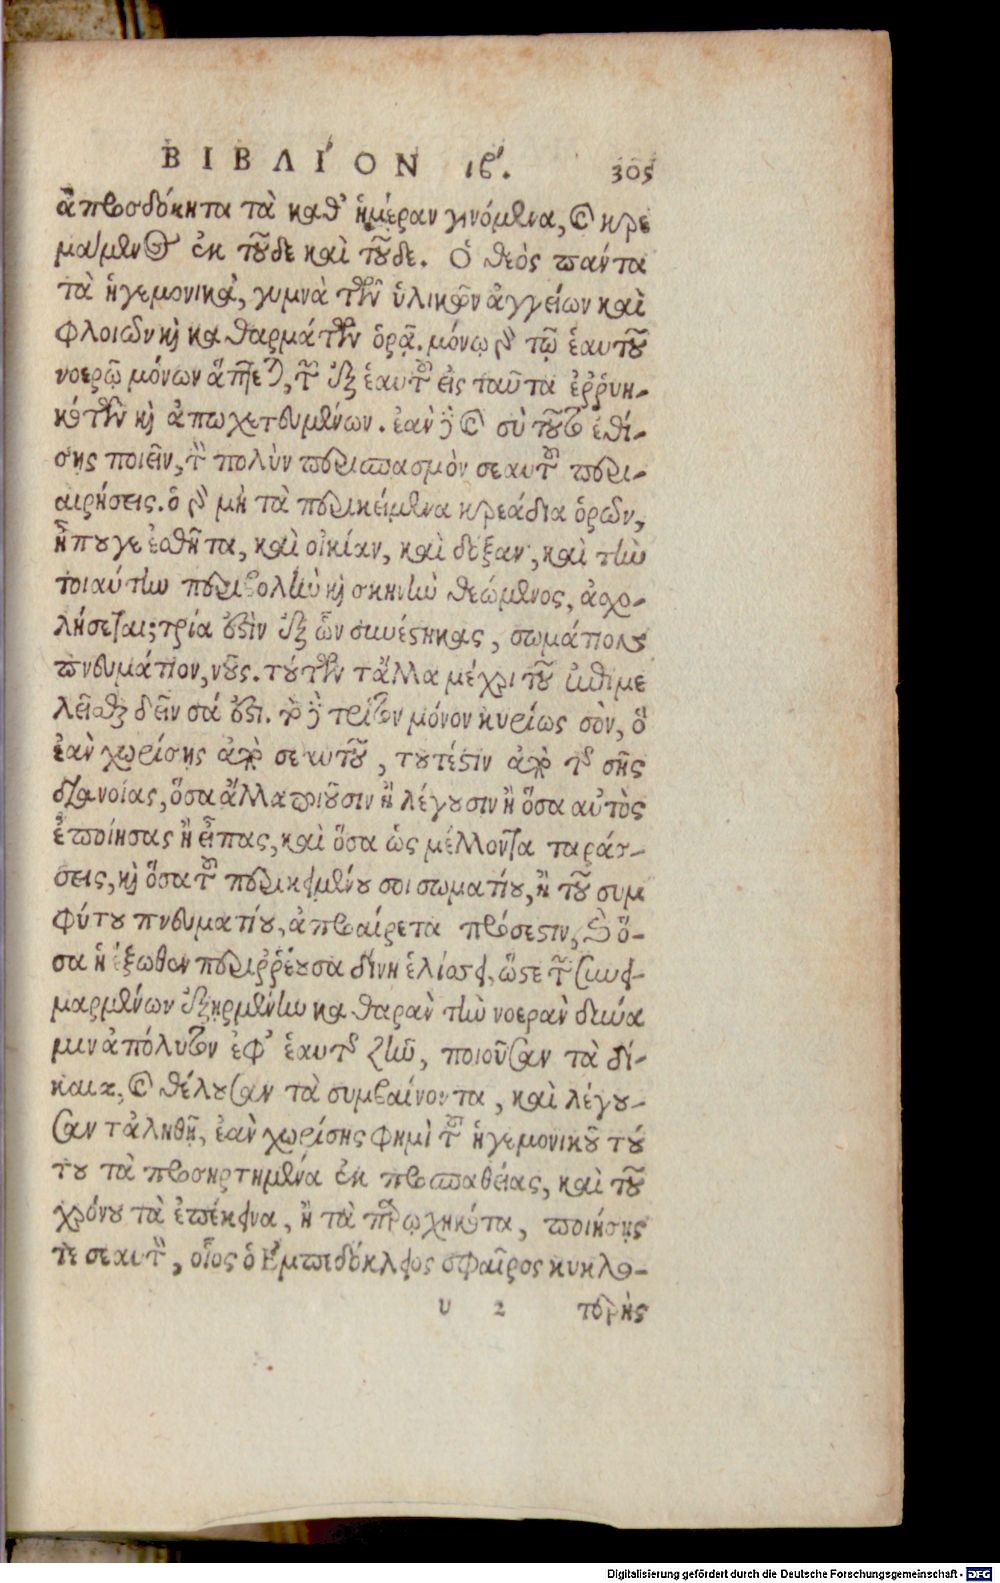 ΒΙΒΛΙ´ΟΝ ιβ´. 305
ἀπροσδόκητα τὰ καθ' ἡμέραν γινόμενα, καὶ κρε
μάμενος ἐκ τοῦδε καὶ τοῦδε. Ὁ θεὸς πάντα
τὰ ἡγεμονικὰ, γυμνὰ τῶν ὑλικῶν ἀγγείων καὶ
φλοιῶν καὶ καθαρμάτων ὁρᾷ. μόνῳ γὰρ τῷ ἑαυτοῦ
νοερῷ μόνων ἅπτεται, τῶν ἐξ ἑαυτοῦ εἰς ταῦτα ἐῤῥυη-
κότων καὶ ἀπωχετευμένων. ἐὰν δὲ καὶ σὺ τοῦτο ἐθί-
σῃς ποιεῖν, τὸν πολὺν περισπασμὸν σεαυτοῦ περι-
αιρήσεις. ὁ γὰρ μὴ τὰ περικείμενα κρεάδια ὁρῶν,
ἦπου γε ἐσθῆτα, καὶ οἰκίαν, καὶ δόξαν, καὶ τὴν
τοιαύτην περιβολὴν καὶ σκηνὴν θεώμενος, ἀσχο-
λήσεται; τρία ἐστὶν ἐξ ὧν συνέστηκας, σωμάτιον,
πνευμάτιον, νοῦς. τούτων τἄλλα μέχρι τοῦ ἐπιμε
λεῖσθαι δεῖν σά ἐστι. τὸ δὲ τρίτον μόνον κυρίως σὸν, ὃ
ἐὰν χωρίσῃς ἀπὸ σεαυτοῦ, τουτέστιν ἀπὸ τῆς σῆς
διανοίας, ὅσα ἄλλα ποιοῦσιν ἢ λέγουσιν ἢ ὅσα αὐτὸς
ἐποίησας ἢ εἶπας, καὶ ὅσα ὡς μέλλοντα ταράσ-
σεις, καὶ ὅσα τοῦ περικειμένου σοι σωματίου, ἢ τοῦ συμ
φύτου πνευματίου, ἀπροαίρετα πρόσεστιν, καὶ ὅ-
σα ἡ ἔξωθεν περιῤῥέουσα δίνη ἑλίσσει, ὥστε τῶν συνει-
μαρμένων ἐξῃρμένην καθαρὰν τὴν νοερὰν δύνα
μιν ἀπόλυτον ἐφ' ἑαυτῆς ζῆν, ποιοῦσαν τὰ δί-
καια, καὶ θέλουσαν τὰ συμβαίνοντα, καὶ λέγου-
σαν τἀληθῆ, ἐὰν χωρίσῃς φημὶ τοῦ ἡγεμονικοῦ τού
του τὰ προσηρτημένα ἐκ προσπαθείας, καὶ τοῦ
χρόνου τὰ ἐπέκεινα, ἢ τὰ παρῳχηκότα, ποιήσῃς
τε σεαυτὸν, οἷος ὁ Ἐμπεδόκλειος σφαῖρος κυκλο-
υ 2 τερὴς
Digitalisierung gefördert durch die Deutsche Forschungsgemeinschaft - DFG